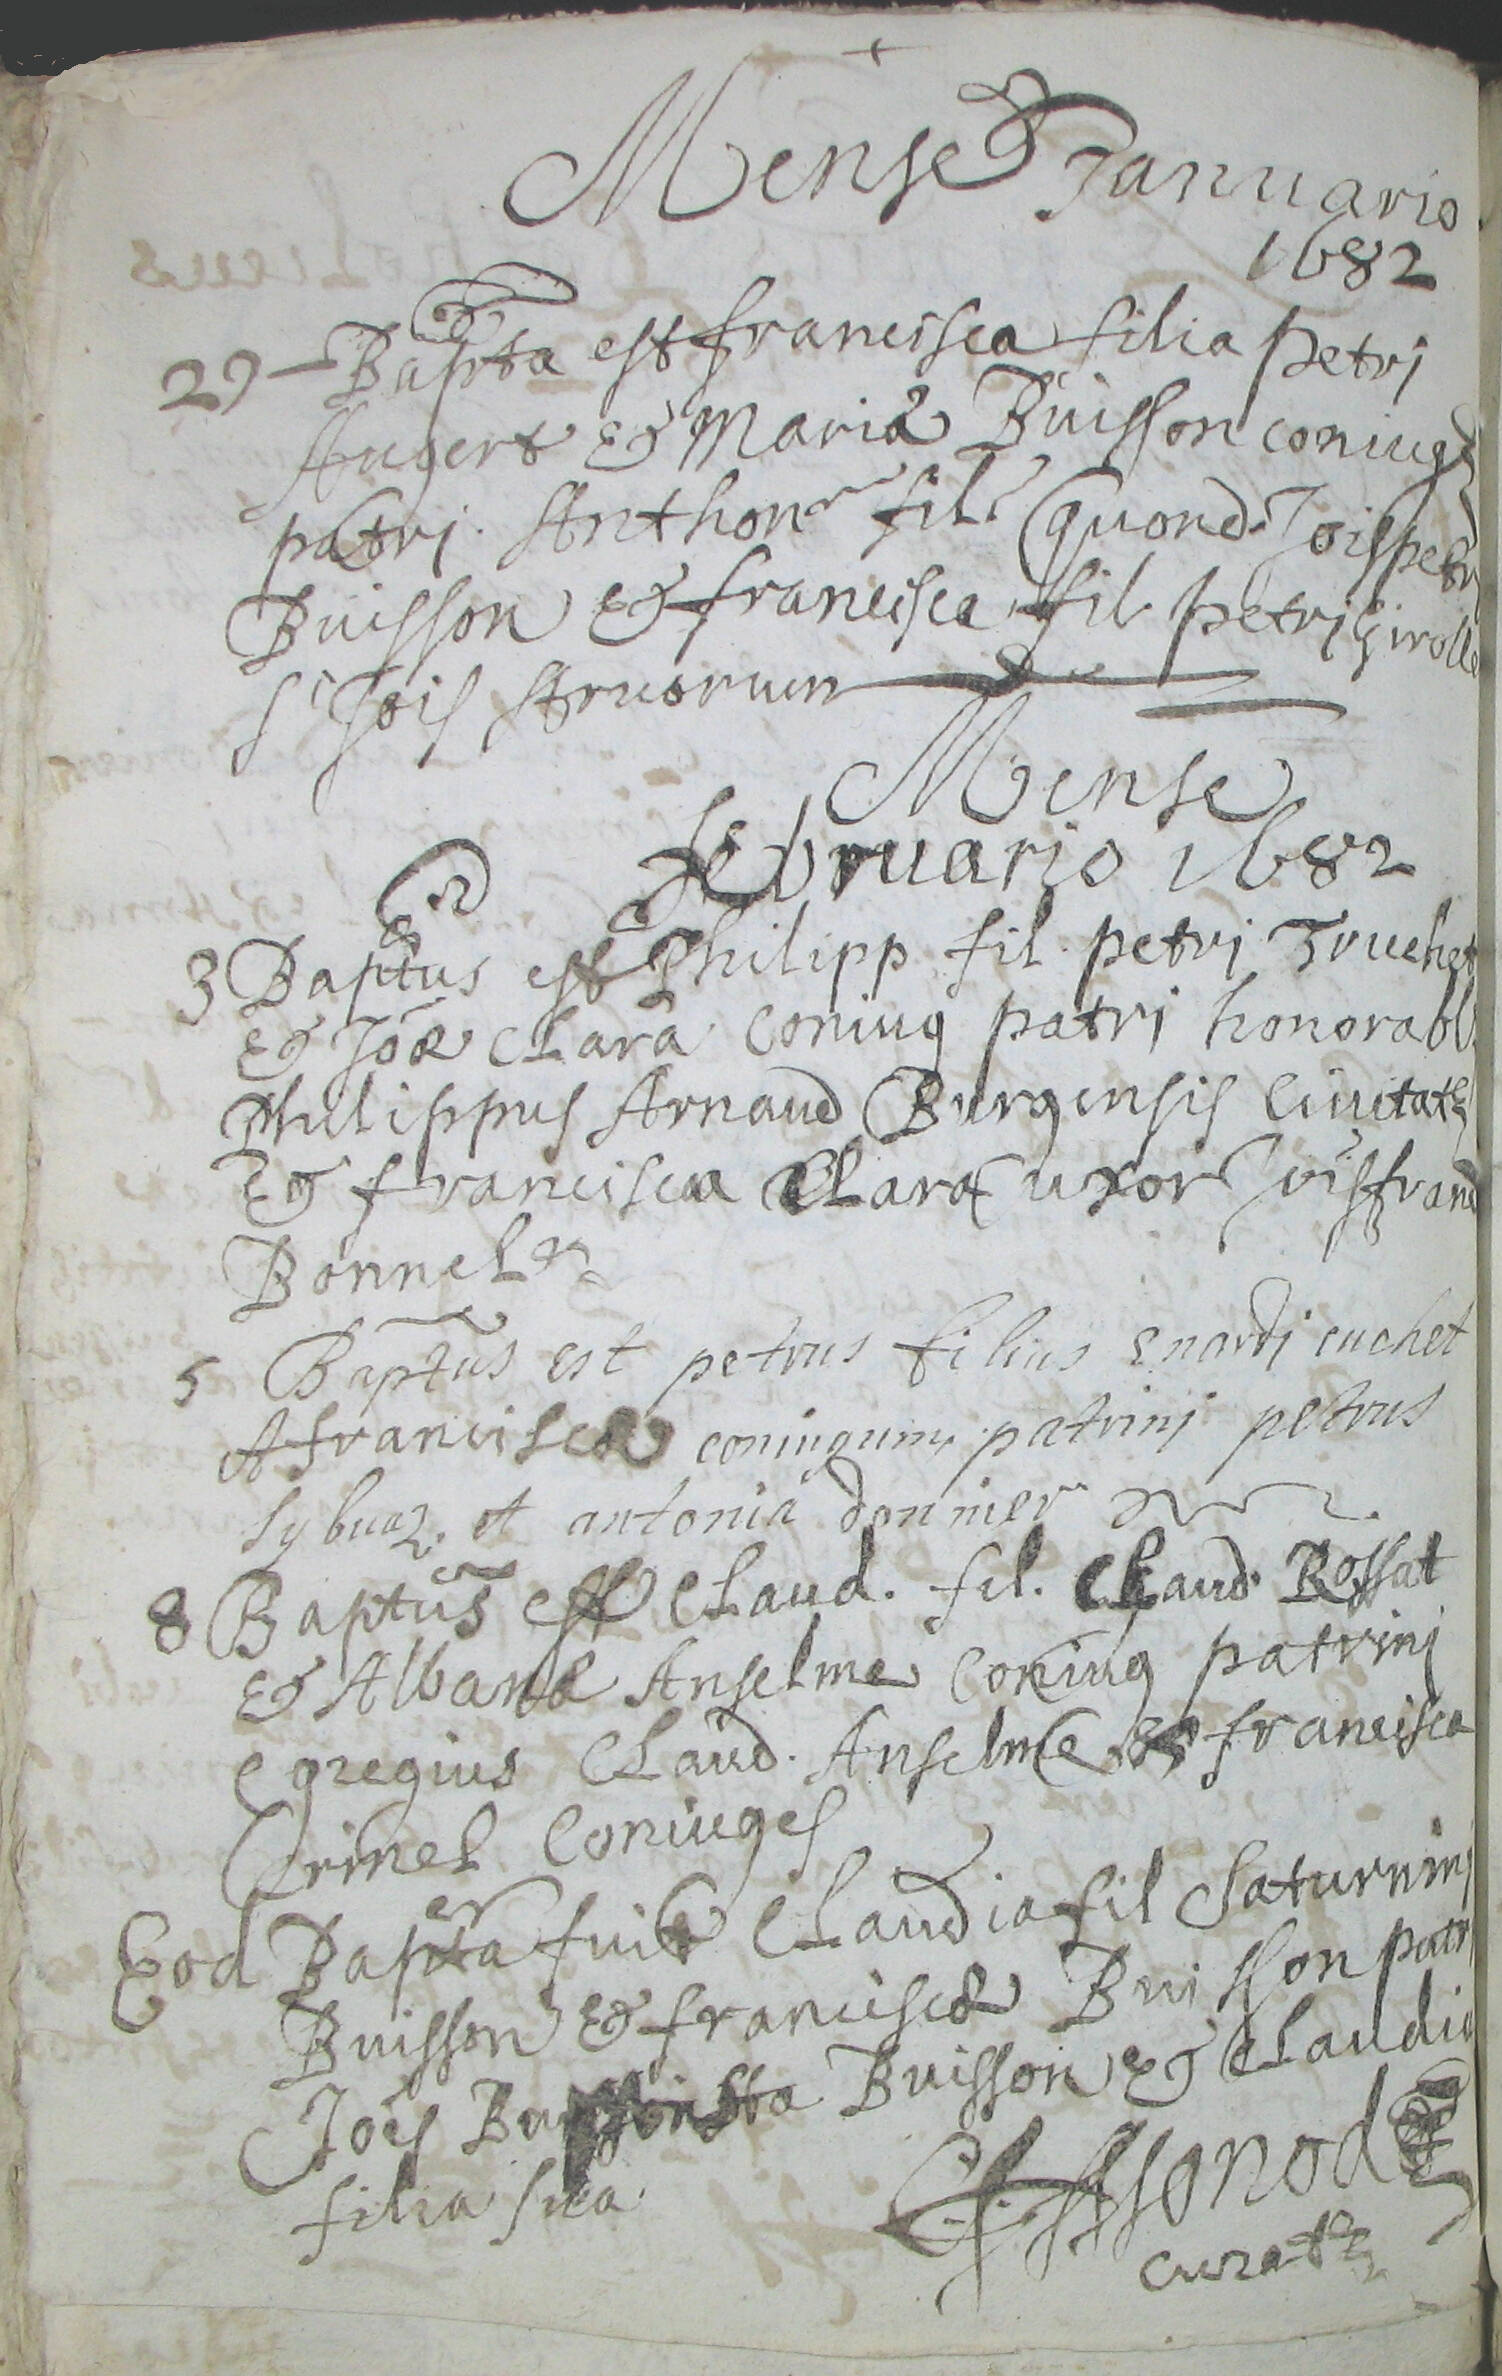 Mense Januario
1682
29 Bapta est francisca filia petri
Augert & Mariæ Buisson coniug
patri. Anthon fil quond Jois petri
Buisson & francisca fil petri girolle
St Jois Aruorum
Mense
februario 1682
3 Baptus est Philipp fil. petri Truchet
& Joæ Clara Coniug patri honorabl.
Philippus Arnaud Burgensis Ciuitatis
& francisca Clara uxor Jois franc
Bonnel
5 Baptus est petrus filius enardi cuchet
& franciscæ coniugum patrinj petrus
sybuaz. et antonia donnier
8 Baptus est Claud. fil. Claud. Rossat
& Albanæ Anselme Coniug patrinj
egregius Claud. Anselme & francisca
Crinel Coniuges
Eod Bapta fuit Claudia fil Saturninj
Buisson & franciscæ Buisson patri
Joes Buisson & Claudia
filia sua.
Essonod
curatus